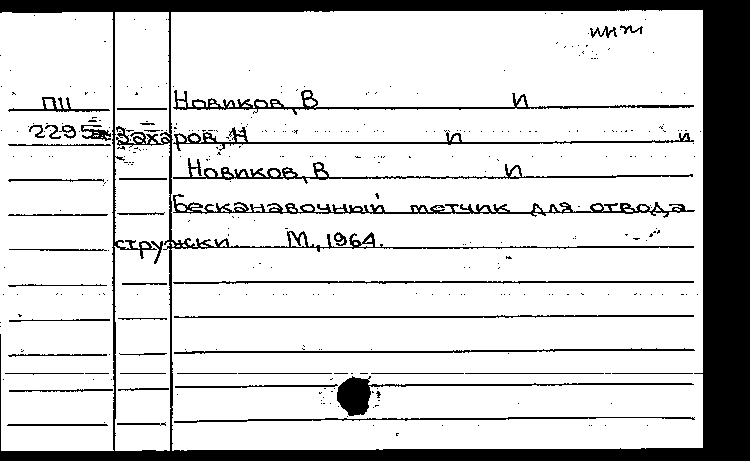 инж
ПII Новиков, В И
2295 Захаров, Н П и
Новиков, В И
Бесканавочный метчик для отвода
стружки М., 1964.